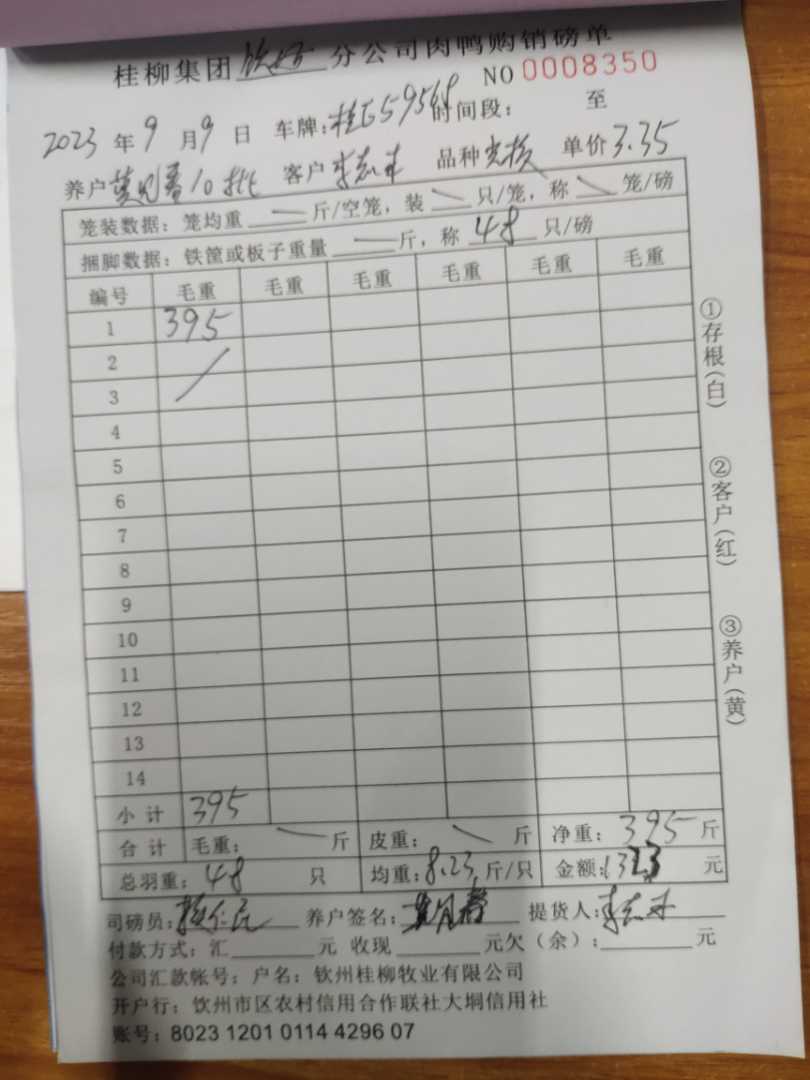 桂柳集团 分公司肉鸭购销磅单
NO 0008350
2023 年 9 月 9 日 车牌: 时间段: 至
养户 10批 客户 李志 品种 单价 3.35
笼装数据: 笼均重 — 斤/空笼, 装 — 只/笼, 称 — 笼/磅
捆脚数据: 铁筐或板子重量 — 斤, 称 48 只/磅
编号 毛重 毛重 毛重 毛重 毛重 毛重
1 395
2
3
4
5
6
7
8
9
10
11
12
13
14
小 计 395
合 计 毛重: — 斤 皮重: — 斤 净重: 395 斤
总羽重: 48 只 均重: 8.23 斤/只 金额: 1323 元
司磅员: 养户签名: 提货人: 李志
付款方式: 汇 元 收现 元欠(余): 元
公司汇款帐号: 户名: 钦州桂柳牧业有限公司
开户行: 钦州市区农村信用合作联社大垌信用社
账号: 8023 1201 0114 4296 07
①存根(白)
②客户(红)
③养户(黄)